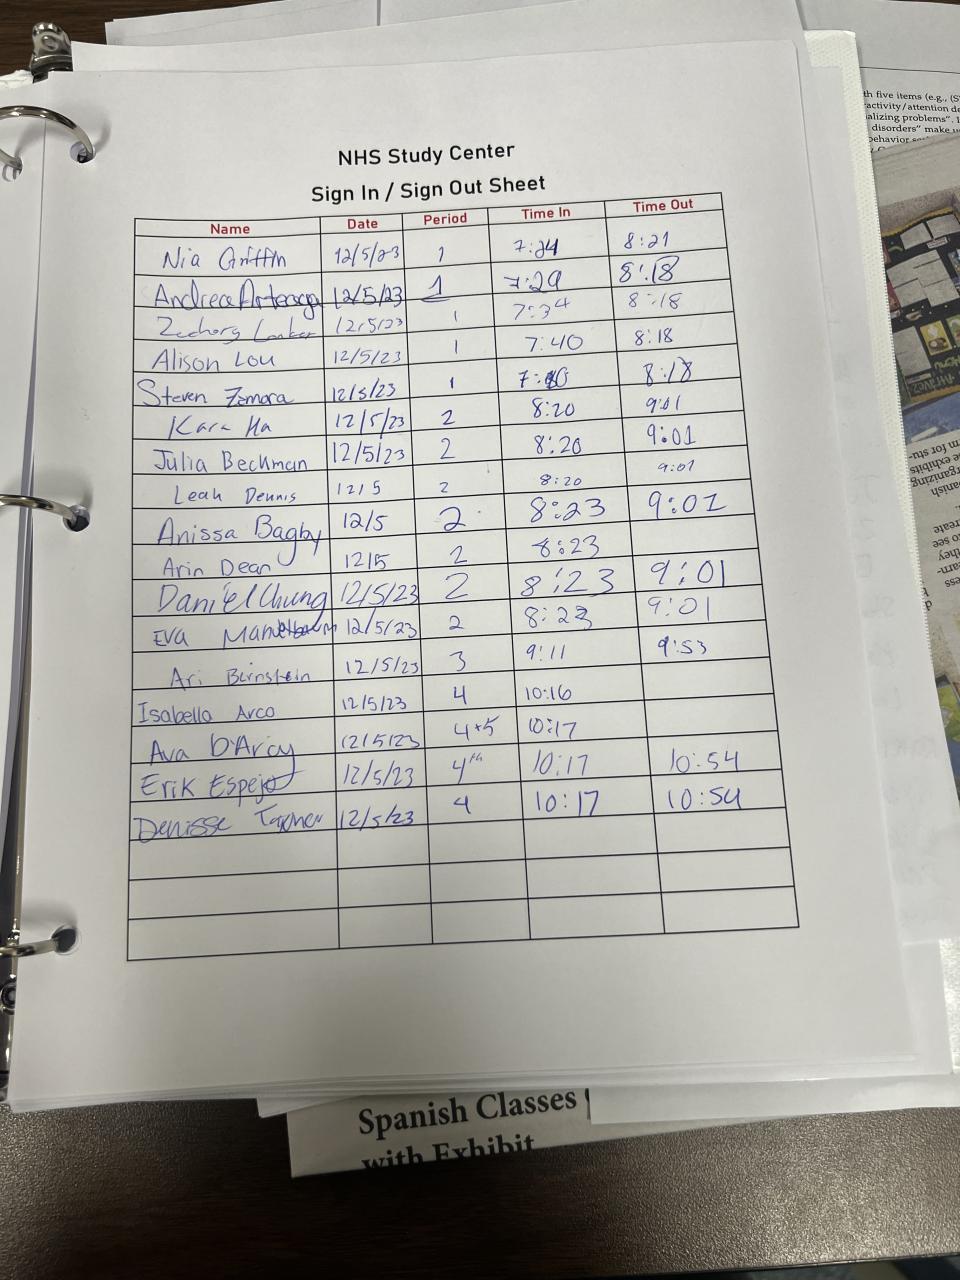 NHS Study Center
Sign In / Sign Out Sheet
Name Date Period Time In Time Out
Nia Griffin 12/5/23 1 7:24 8:21
Andreea 12/5/23 1 7:29 8:18
12/5/23 1 7:34 8:18
Alison Lou 12/5/23 1 7:40 8:18
Steven Zamora 12/5/23 1 8:18
Kara Ha 12/5/23 2 8:20 9:01
Julia Beckman 12/5/23 2 8:20 9:01
Leah Dennis 12/5 2 8:20 9:01
Anissa Bagby 12/5 2 8:23 9:01
Arin Dean 12/5 2 8:23
Daniel Chung 12/5/23 2 8:23 9:01
Eva 12/5/23 2 8:23 9:01
Ari Birnstein 12/5/23 3 9:11 9:53
Isabella Arco 12/5/23 4 10:16
Ava D'Arcy 12/5/23 4+5 10:17
Erik Espejo 12/5/23 4th 10:17 10:54
Denisse 12/5/23 4 10:17 10:54
Spanish Classes
with Exhibit
th five items (e.g.,
activity/attention
alizing problems".
disorders" make
behavior